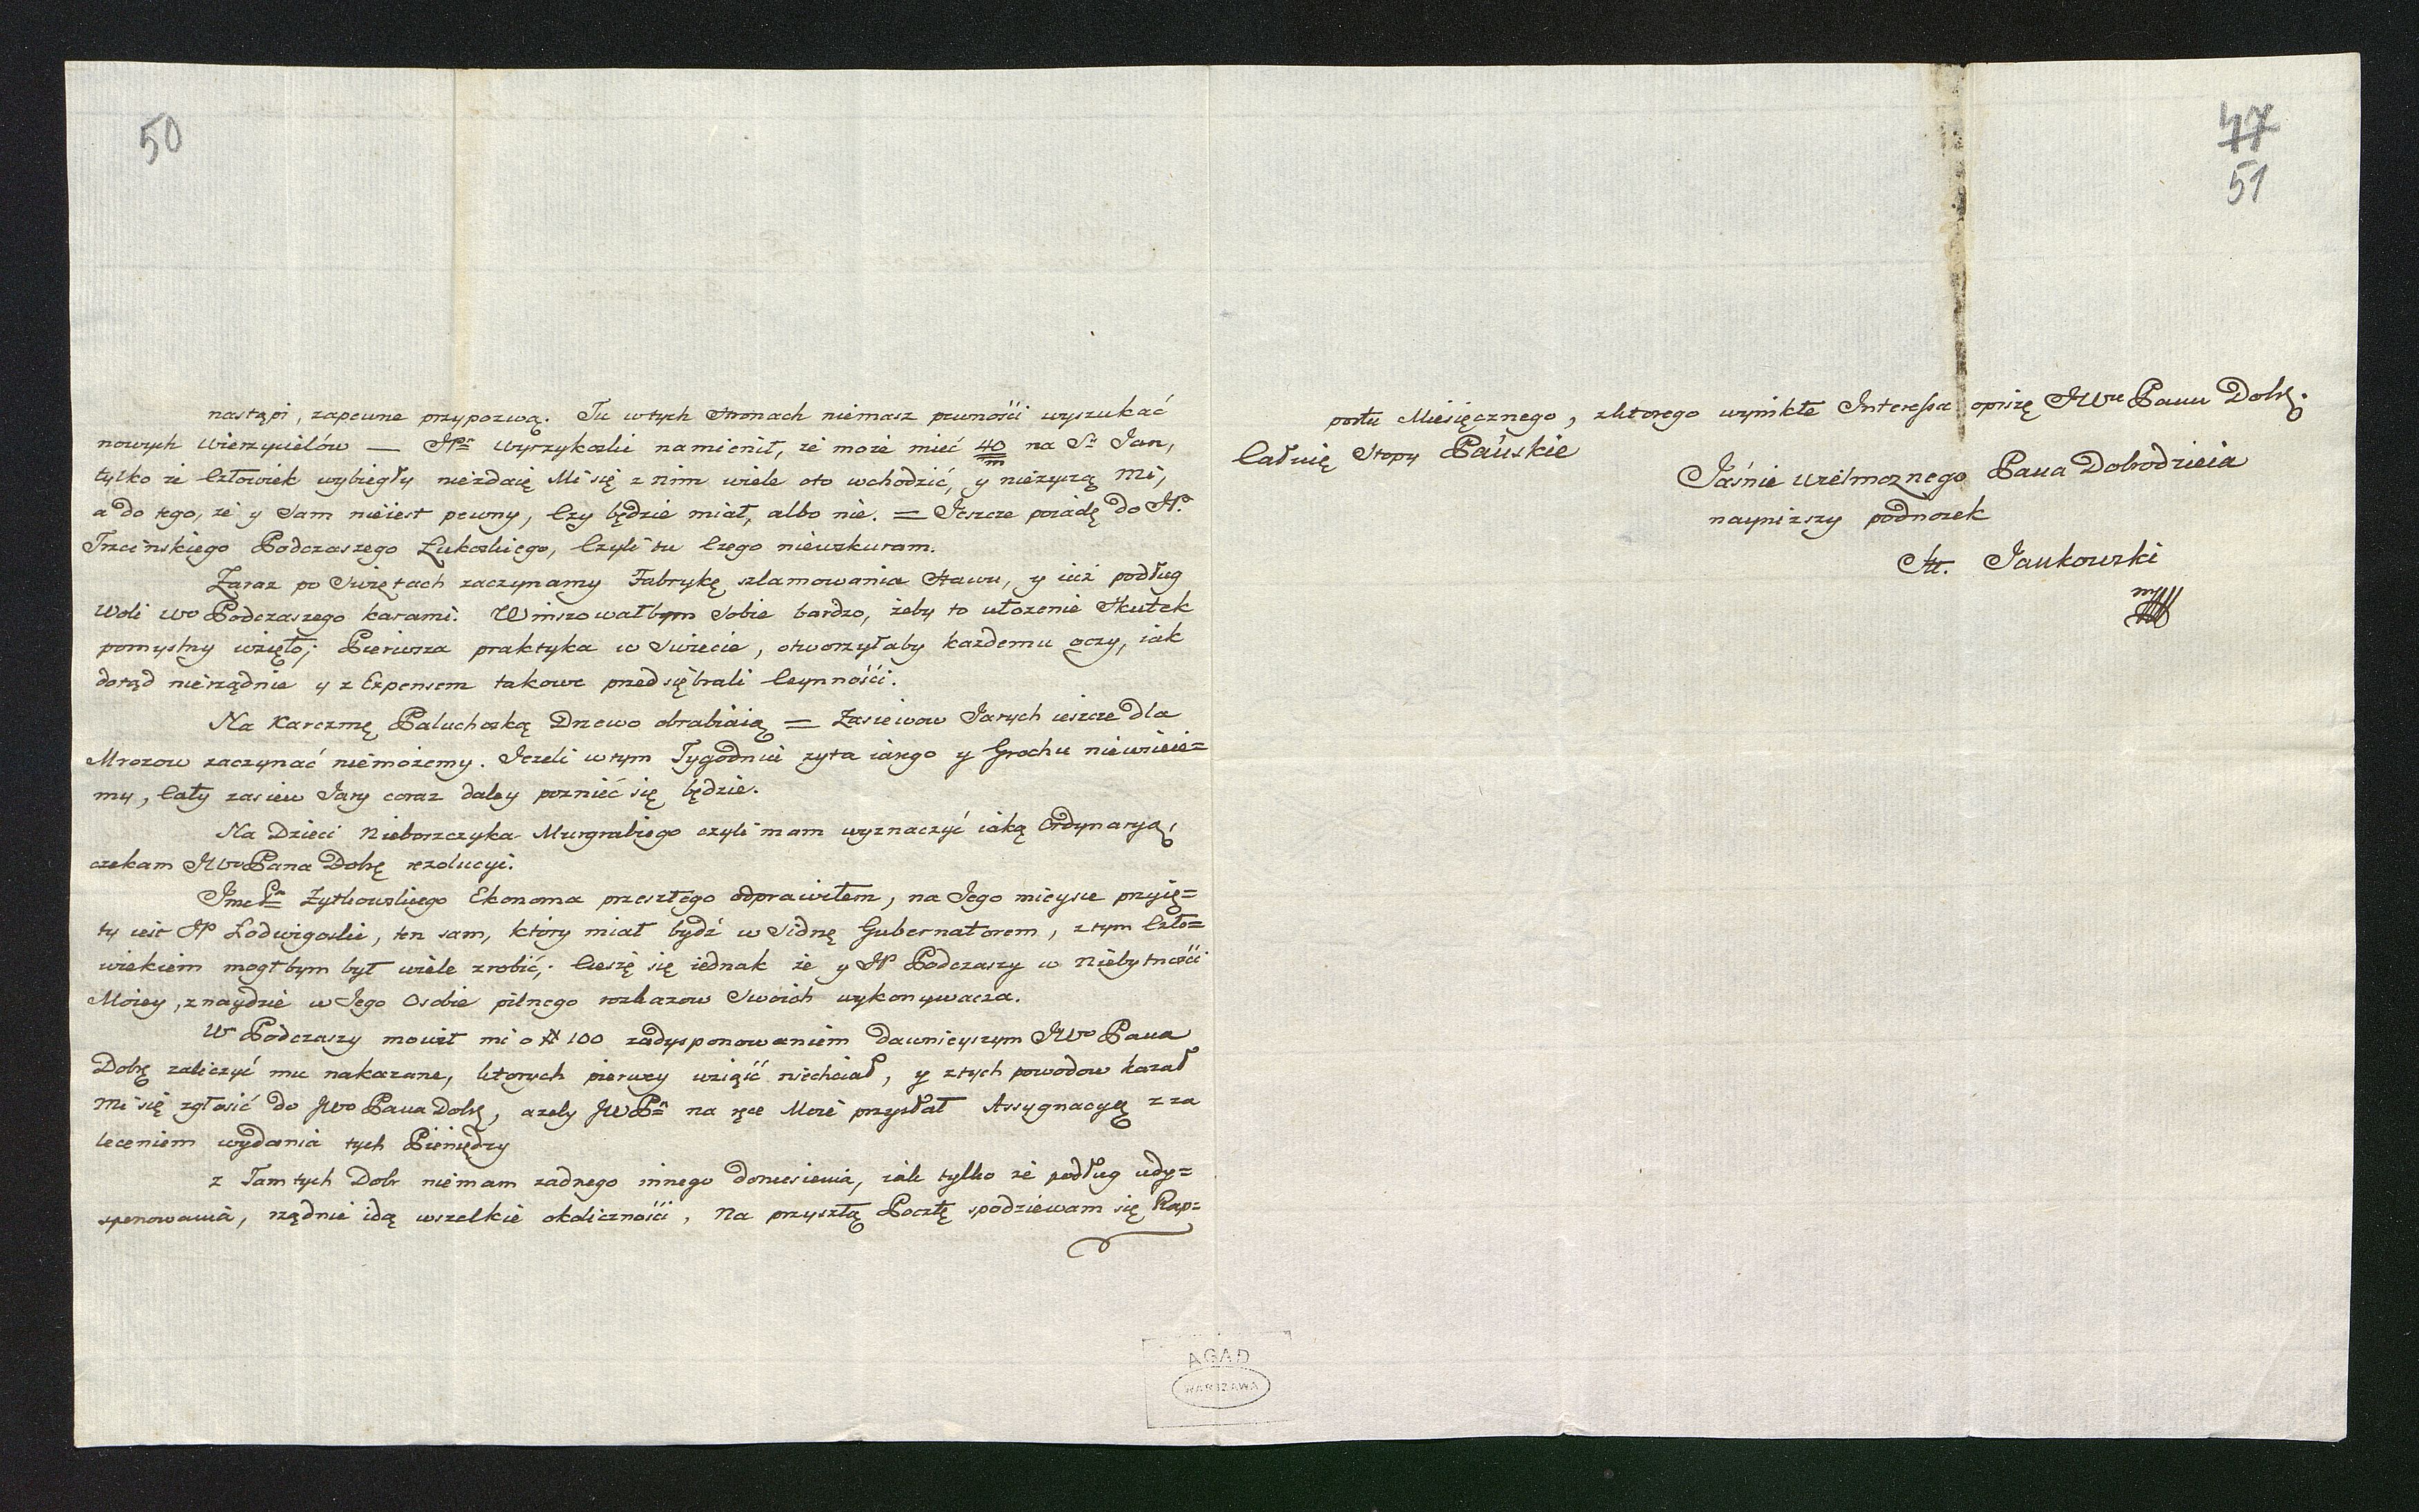 50
nastąpi, zapewne przypozwą. Tu w tych stronach niemasz pewnośći wyszukać
nowych wierzycielów — JPn Wyrzykoski namienił, że może mieć 40/m na St Jan,
tylko że Człowiek wybiegły niezdaię Mi się z nim wiele oto wchodzić, y nieżyczą Mi,
a do tego, że y Sam nieiest pewny, Czy będzie miał, albo nie. = Jeszcze poiadę do JP.
Trzcinskiego Podczaszego Łukoskiego, Czyli tu Czego niewskuram.
Zaraz po Swiętach zaczynamy Fabrykę szlamowania Stawu, y iuż podług
Woli Wo Podczaszego karami. Winszowałbym Sobie bardzo, żeby to ułożenie Skutek
pomyslny wzięło; Pierwsza praktyka w Swiecie, otworzyłaby każdemu oczy, iak
dotąd nierządnie y z Expensem takowe przedsiębrali Czynnośći.
Na Karczmę Paluchoską Drzewo obrabiaią = Zasiewow Jarych ieszcze dla
Mrozow zaczynać niemożemy. Jezeli w tym Tygodniu żyta iarego y Grochu niewsieie=
my, Cały zasiew Jary coraz daley poznieć się będzie.
Na Dzieci Nieboszczyka Murgrabiego czyli mam wyznaczyć iaką Ordynaryą,
czekam JWo Pana Dobrę rezolucyi.
Jmć Pn Żytkowskiego Ekonoma przeszłego odprawiłem, na Jego mieysce przyię=
ty iest JP Łodwigoski, ten sam, który miał bydź w Sidrę Gubernatorem, z tym Czło=
wiekiem mogłbym był wiele zrobić; Cieszę się iednak że y JP Podczaszy w Niebytnośći
Moiey, znaydzie w Jego Osobie pilnego rozkazow Swoich wykonywacza.
W Podczaszy mowił mi o # 100 zadysponowaniem dawnieyszym JWo Pana
Dobrę zaliczyć mu nakazane, ktorych pierwey wziąić niechciał, y z tych powodow kazał
mi się zgłosić do JWo Pana Dobrę, azeby JWPn na ręce Moie przysłał Assygnacyą z za
leceniem wydania tych Pieniędzy
z Tamtych Dobr niemam żadnego innego doniesienia, iak tylko że podług udy=
sponowania, rządnie idą wszelkie okolicznośći, Na przyszłą Pocztę spodziewam się Rap=
47
51
portu Miesięcznego, z ktorego wynikłe Interessa opiszę JWu Panu Dobrę.
Całuię Stopy Pańskie
Jaśnie Wielmożnego Pana Dobrodzieia
naynizszy podnozek
St. Jankowski
mp
AGAD
WARSZAWA